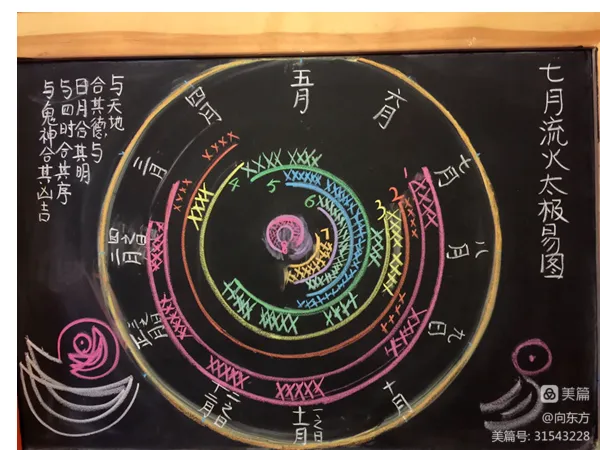 七月流火太极易图
与天地
合其德,与
日月合其明
与四时合其序
与鬼神合其凶吉
五月
六月
七月
八月
九月
十月
十一月
一之日
十二月
二之日
正月
三之日
四之日
二月
三月
四月
1
2
3
4
5
6
7
美篇
@向东方
美篇号: 31543228